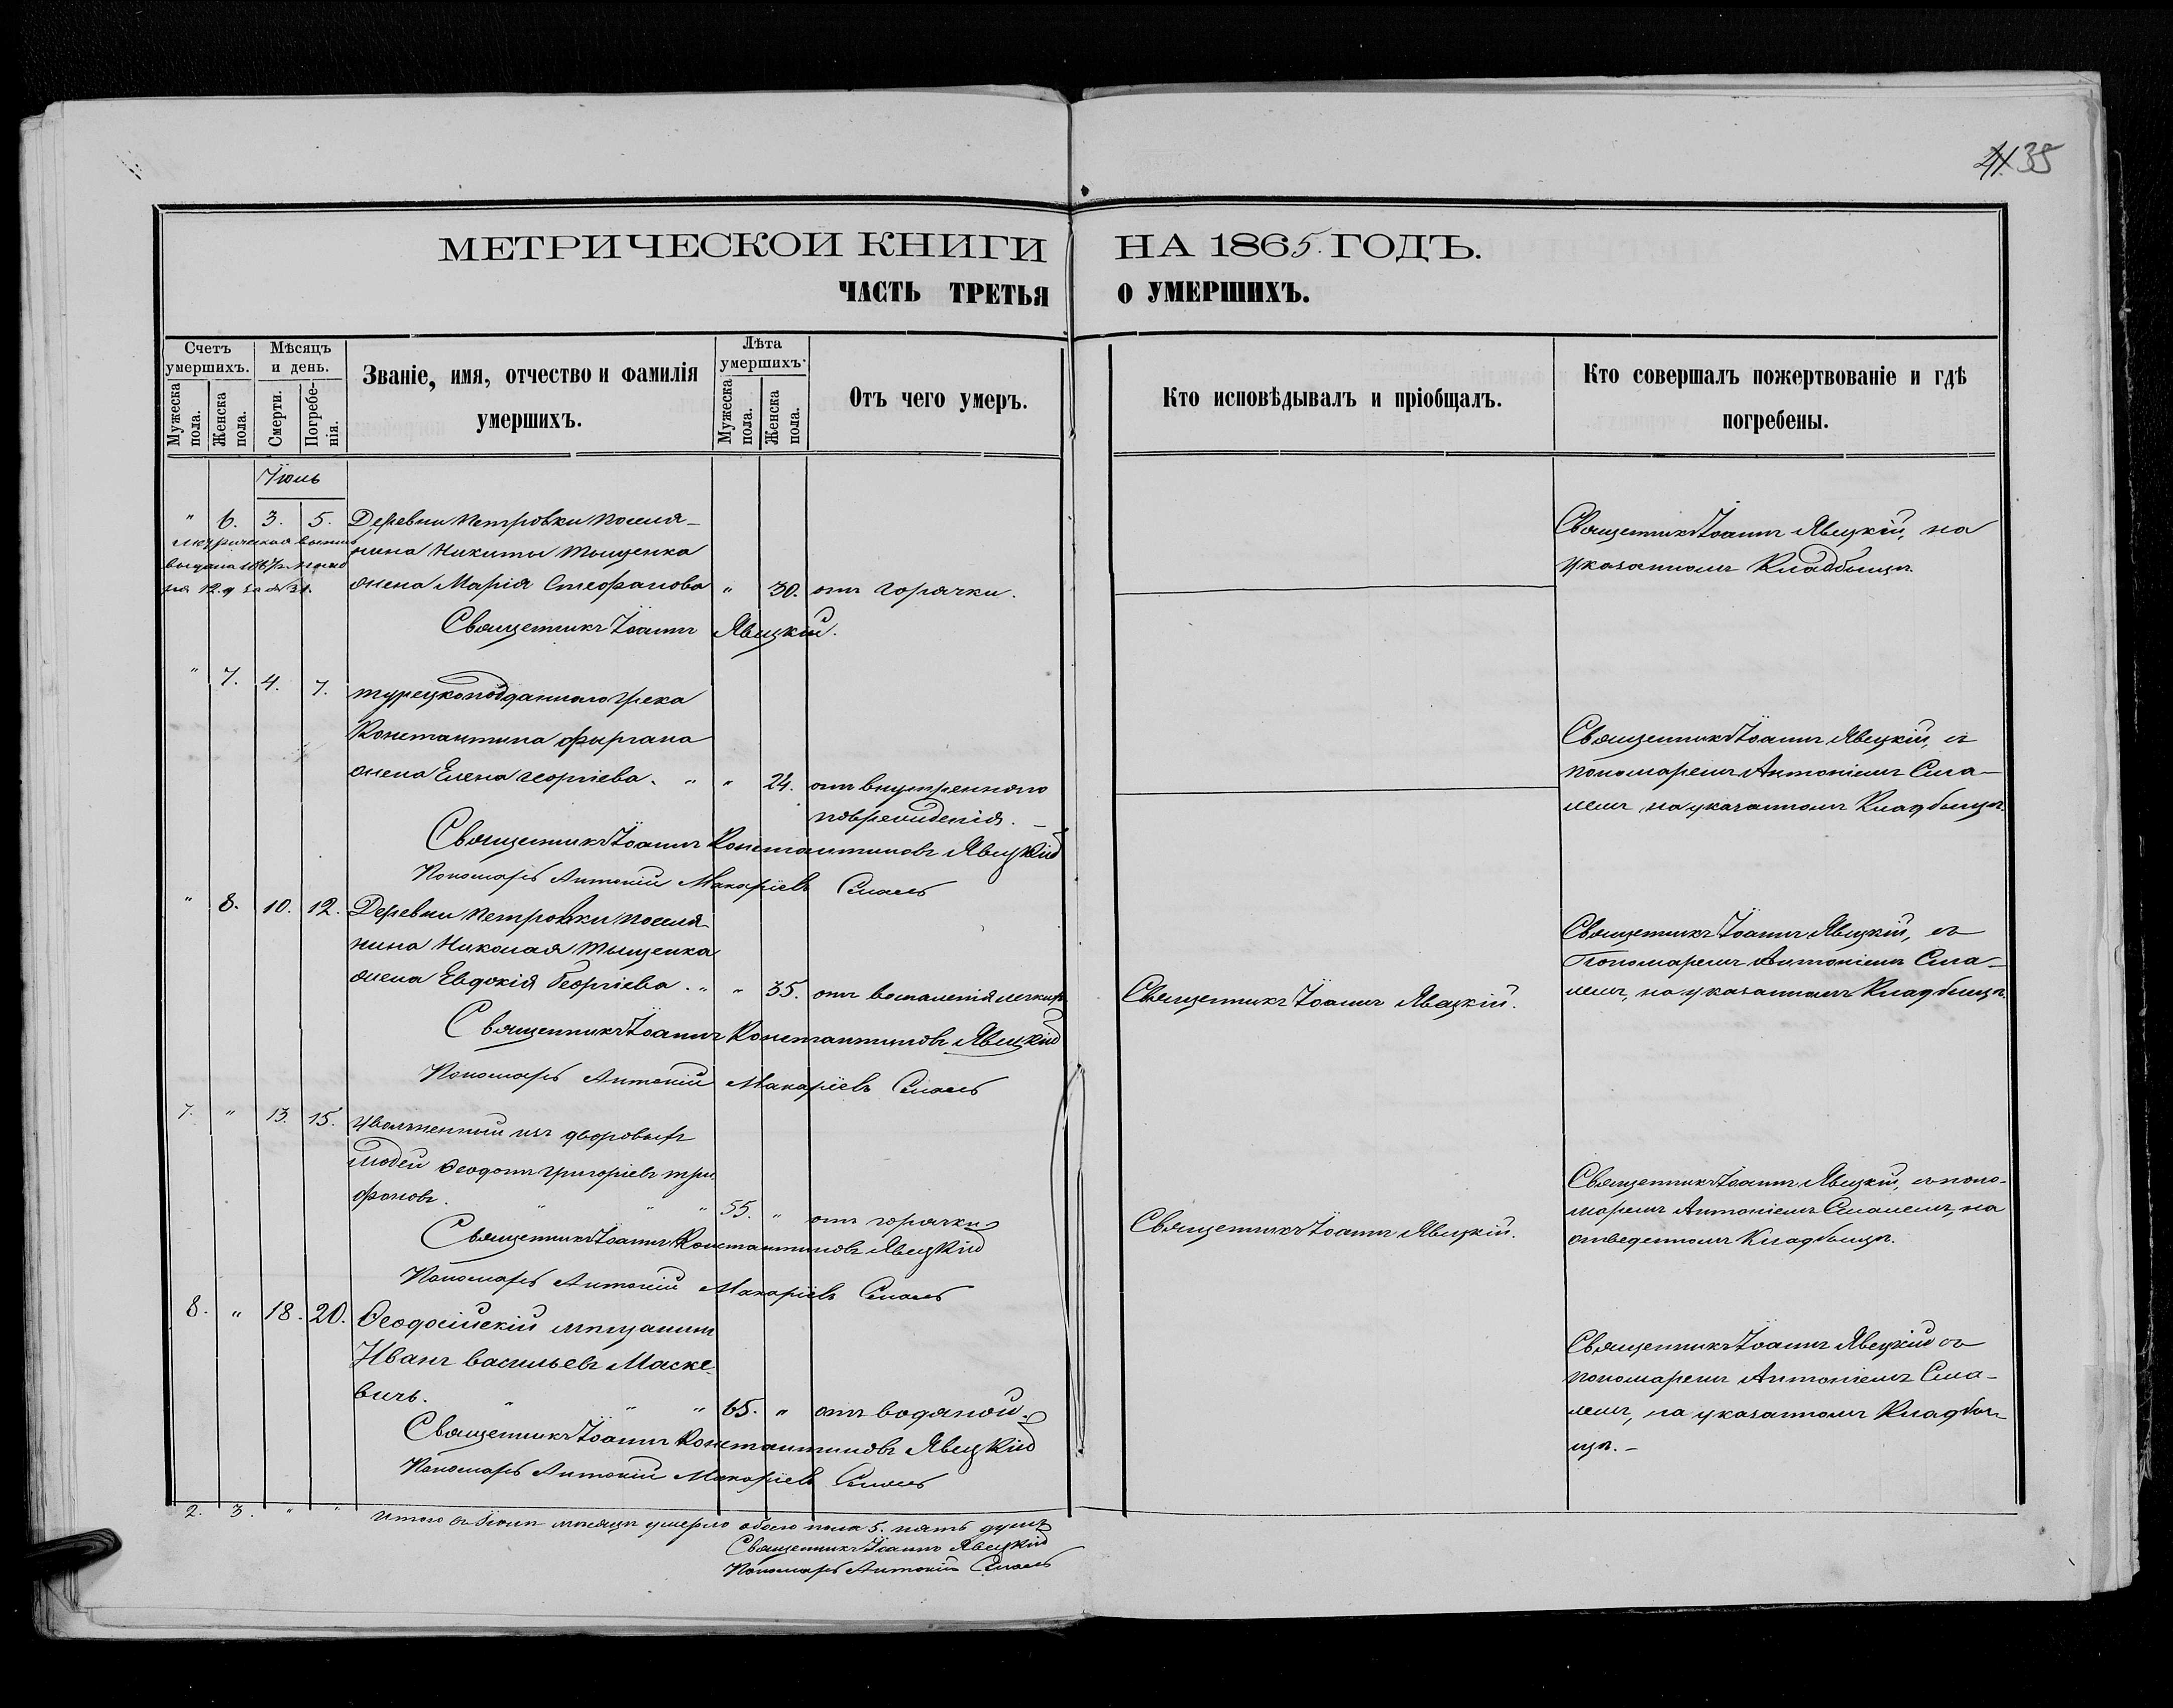 41. 35
МЕТРИЧЕСКОЙ КНИГИ НА 1865. ГОДЪ.
ЧАСТЬ ТРЕТЬЯ О УМЕРШИХЪ.
Счетъ умершихъ.
Мужеска пола.
Женска пола.
Мѣсяцъ и день.
Смерти.
Погребенія.
Званіе, имя, отчество и фамилія
умершихъ.
Лѣта умершихъ.
Мужеска пола.
Женска пола.
Отъ чего умеръ.
Кто исповѣдывалъ и пріобщалъ.
Кто совершалъ пожертвованіе и гдѣ
погребены.
Іюль
" 6. 3. 5. Деревни Петровки поселя-
нина Никиты Тыщенка
жена Марія Стефанова " 30. отъ горячки.
Священникъ Іоаннъ Явецкій.
Священникъ Іоаннъ Явецкій, на
указанномъ Кладбищѣ.
" 7. 4. 7. турецкоподданного грека
Константина Фыргана
жена Елена Георгіева. " " 24. отъ внутренного
поврежденія.
Священникъ Іоаннъ Константиновъ Явецкій
Пономарь Антоній Макаріевъ
Священникъ Іоаннъ Явецкій, съ
пономаремъ Антоніемъ
на указанномъ Кладбищѣ.
" 8. 10. 12. Деревни Петровки поселя-
нина Николая Тыщенка
жена Евдокія Георгіева. " " 35. отъ воспаленія легкихъ
Священникъ Іоаннъ Константиновъ Явецкій
Пономарь Антоній Макаріевъ
Священникъ Іоаннъ Явецкій.
Священникъ Іоаннъ Явецкій, съ
Пономаремъ Антоніемъ
на указанномъ Кладбищѣ.
7. " 13. 15. Уволненный изъ дворовыхъ
людей Ѳеодотъ Григоріевъ Три-
фоновъ. " " " 55. " отъ горячки
Священникъ Іоаннъ Константиновъ Явецкій
Пономарь Антоній Макаріевъ
Священникъ Іоаннъ Явецкій.
Священникъ Іоаннъ Явецкій, съ поно-
маремъ Антоніемъ на
отведенномъ Кладбищѣ.
8. " 18. 20. Ѳеодосійскій мѣщанинъ
Иванъ Васильевъ Маске-
вичь. " " " 65. " отъ водяной.
Священникъ Іоаннъ Константиновъ Явецкій
Пономарь Антоній Макаріевъ
Священникъ Іоаннъ Явецкій съ
пономаремъ Антоніемъ
на указанномъ Кладби-
щѣ.
2. 3. " " Итого въ Іюлѣ мѣсяцѣ умерло обоего пола 5. пять душъ
Священникъ Іоаннъ Явецкій
Пономарь Антоній